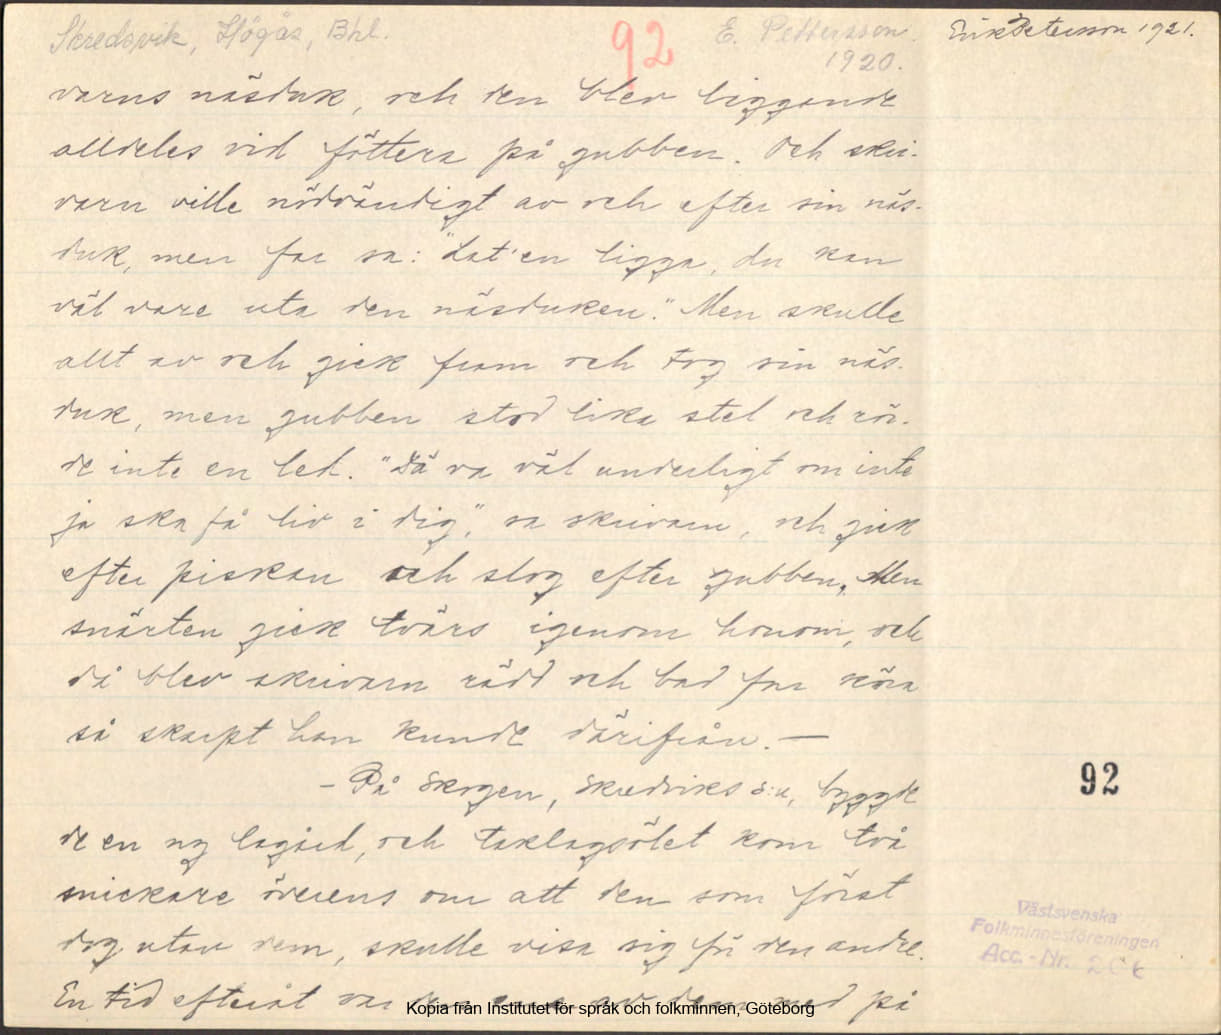 Skredsvik, Högås, Bhl. 92 E. Pettersson. Erik Petersson 1921.
1920.
varns näsduk, och den blev liggande
alldeles vid föttera på gubben. Och skri-
varn ville nödvändigt av och efter sin näs-
duk, men far sa: "Lat'en ligga, du kan
väl vare uta den näsduken." Men skulle
allt av och gick fram och tog sin näs-
duk, men gubben stod lika stel och rör-
de inte en led. "Dä va väl underligt om inte
ja ska få liv i dig", sa skrivarn, och gick
efter piskan och slog efter gubben. Men
snärten gick tvärs igenom honom, och
då blev skrivarn rädd och bad far köra
så skarpt han kunde därifrån. —
- På Skogen, Skredsviks s:n, byggde
de en ny lagård, och taklagsölet kom två
snickare överens om att den som först
dog utav dem, skulle visa sig för den andre.
En tid efteråt var den ene av dem med på
92
Västsvenska
Folkminnesföreningen
Acc. - Nr.
Kopia från Institutet för språk och folkminnen, Göteborg